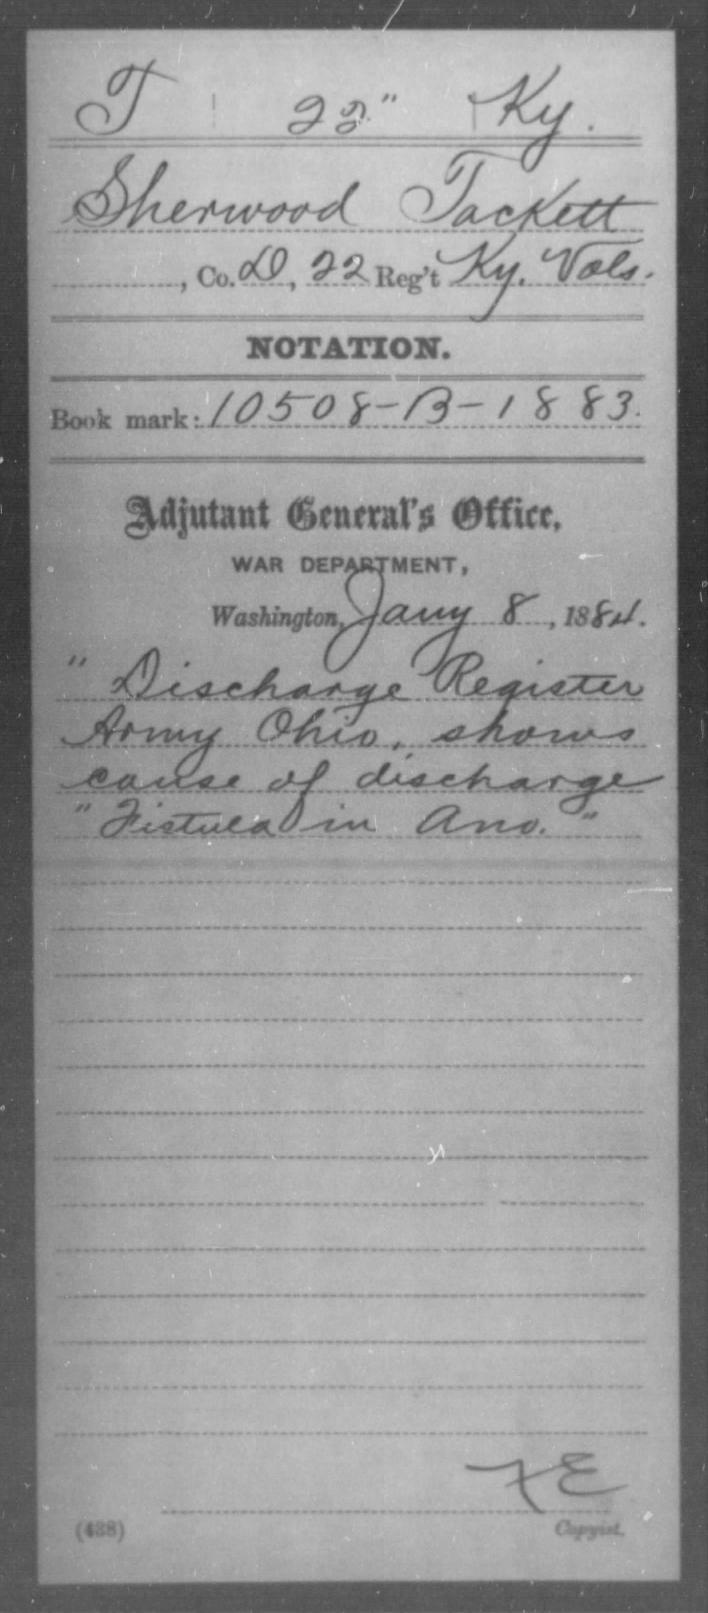 T | 22" | Ky.
Sherwood Tackett
, Co. D, 22 Reg't Ky. Vols.
NOTATION.
Book mark: 10508-B-1883.
Adjutant General's Office,
WAR DEPARTMENT,
Washington, Jany 8, 1884.
" Discharge Register
Army Ohio, shows
cause of discharge
"Fistula in Ano."
(438)
Copyist.